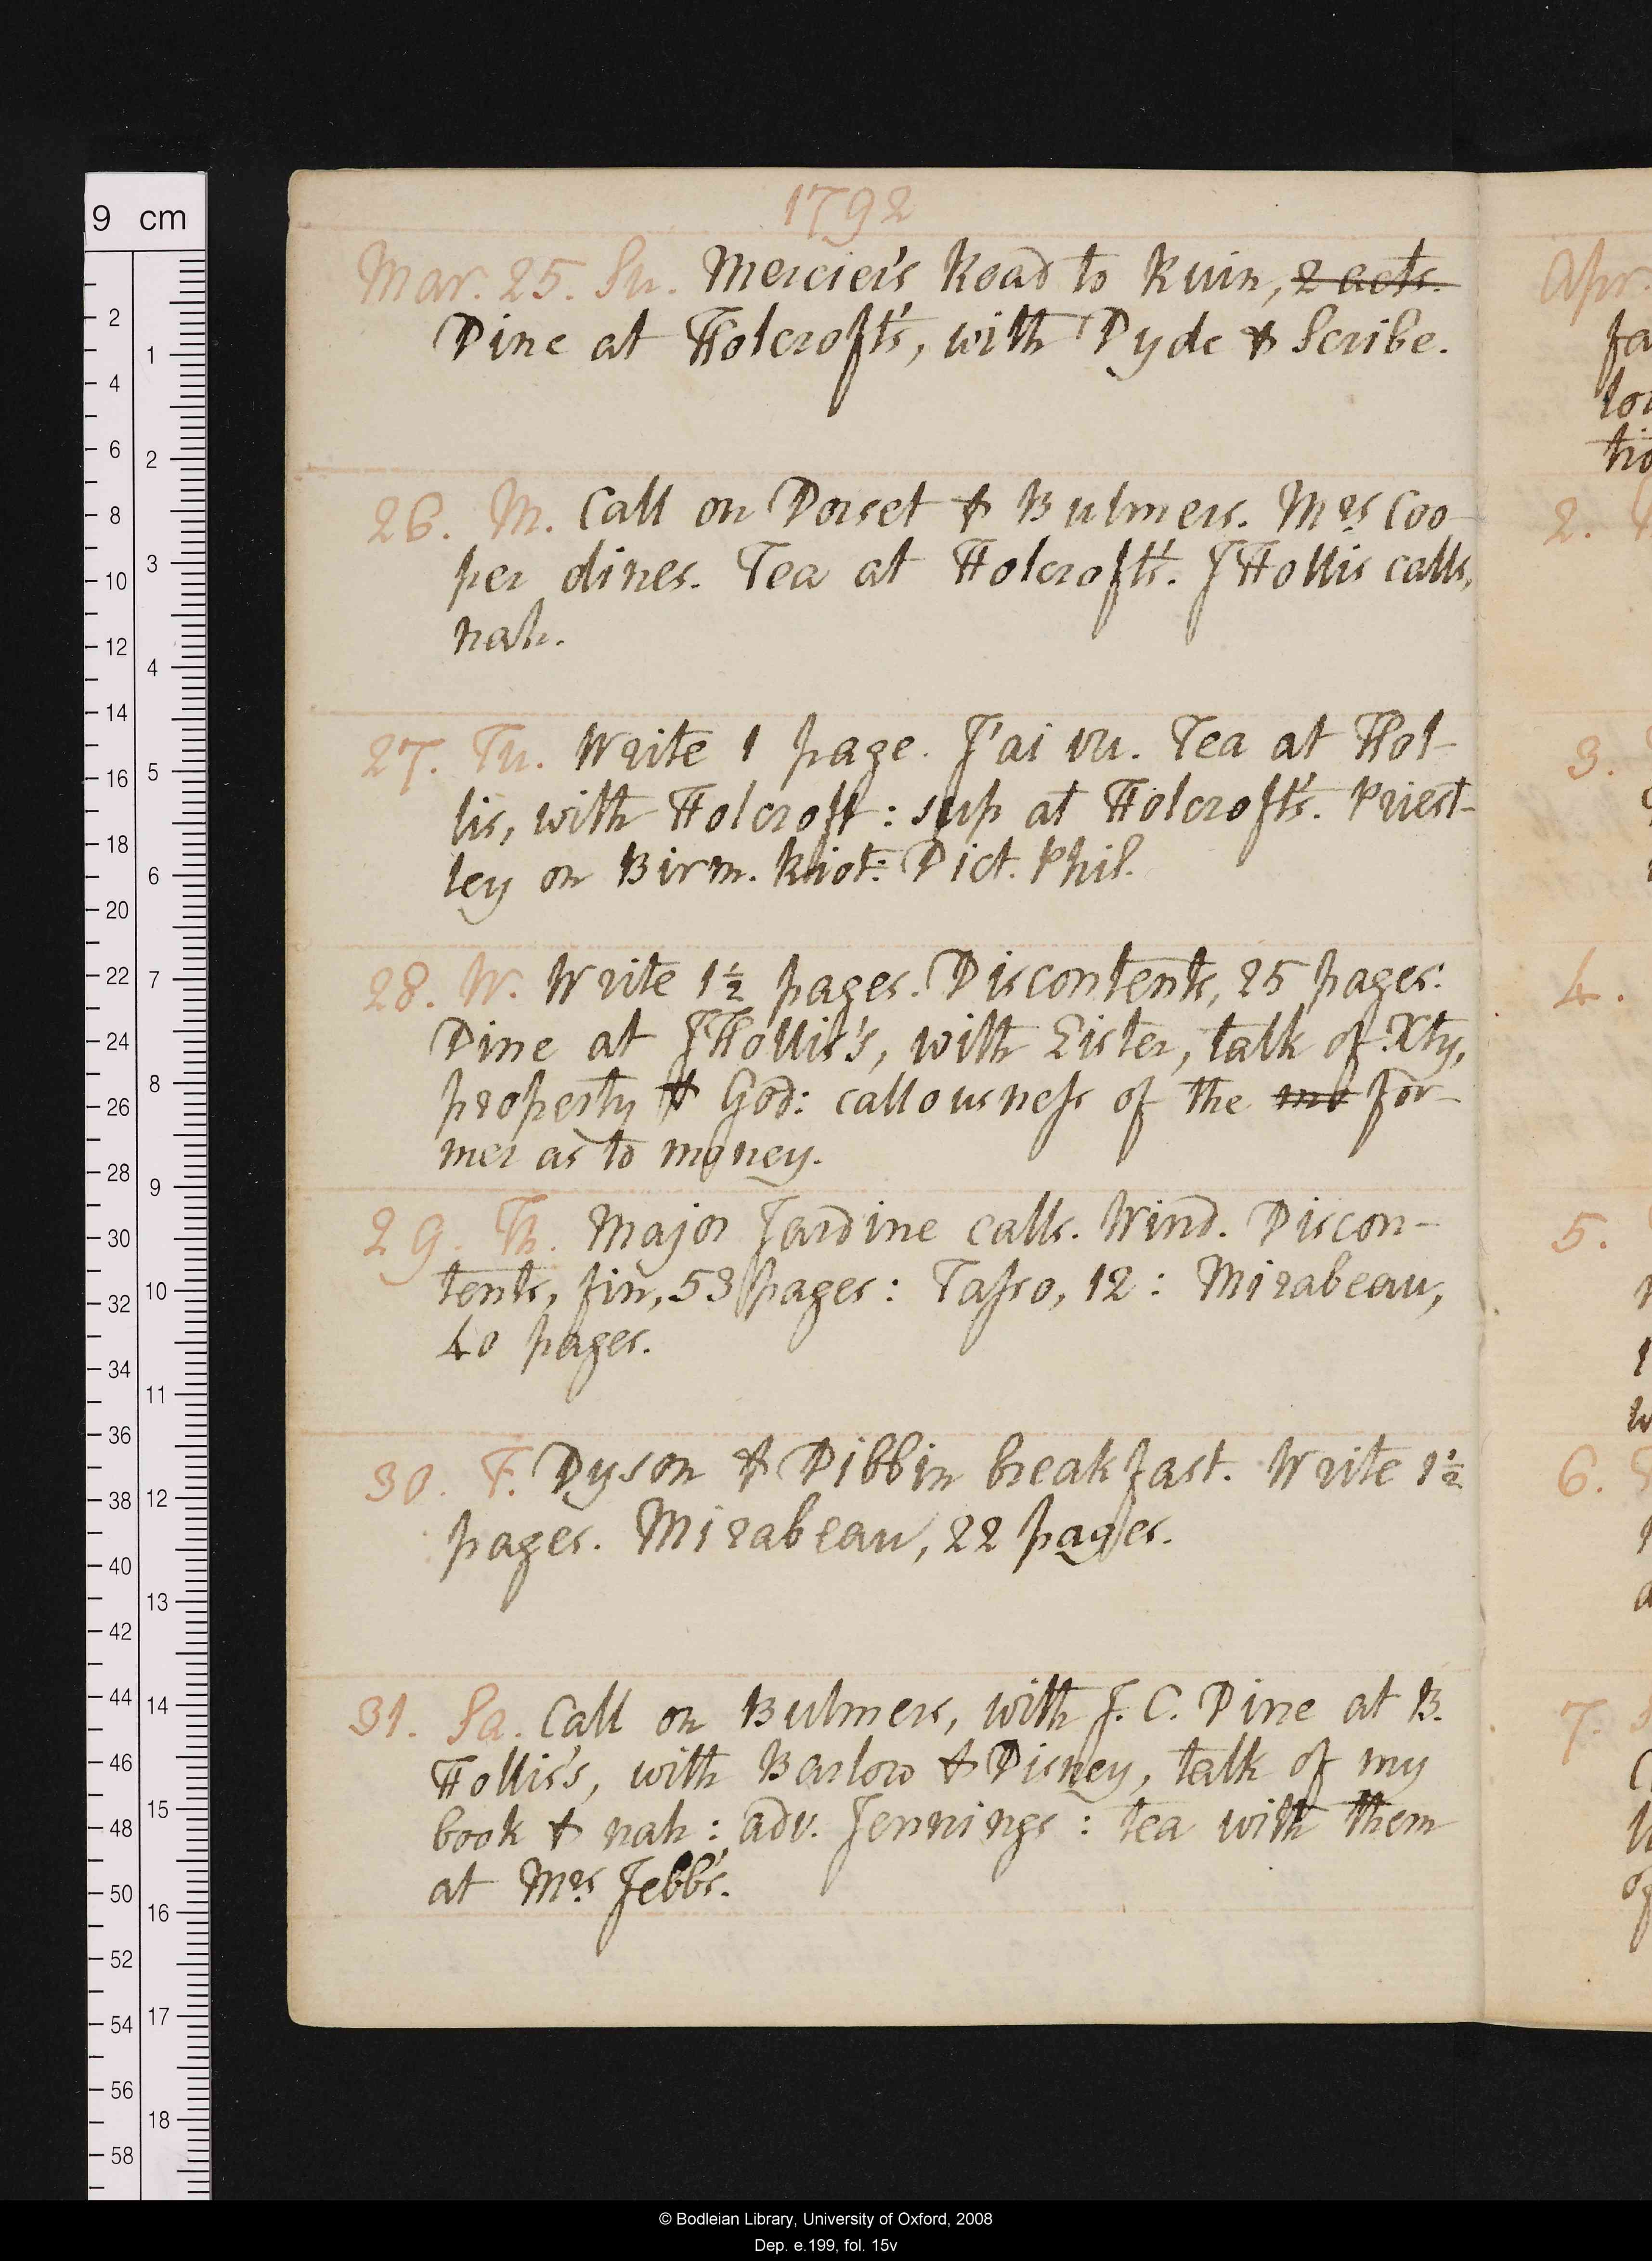 1792
Mar. 25. Su. Mercier's Road to Ruin, 2 acts.
Dine at Holcroft's, with Dyde & Scribe.
26. M. Call on Dorset & Bulmers. Mrs Coo-
per dines. Tea at Holcroft's. J Hollis calls,
nah.
27. Tu. Write 1 page. J'ai vu. Tea at Hol-
lis, with Holcroft: sup at Holcroft's. Priest-
ley on Birm. Riot: Dict. Phil.
28. W. Write 1½ pages. Discontents, 25 pages.
Dine at J Hollis's, with Lister, talk of Xty,
property & God: callousneſs of the for-
mer as to money.
29. Th. Major Jardine calls. Wind. Discon-
tents, fin, 53 pages: Taſso, 12: Mirabeau,
40 pages.
30. F. Dyson & Dibbin breakfast. Write 1½
pages. Mirabeau, 22 pages.
31. Sa. Call on Bulmers, with J. C. Dine at B.
Hollis's, with Barlow & Disney, talk of my
book & nah: adv. Jennings: tea with them
at Mrs Jebb's.
Apr.
fa
lou
tio
2.
3.
4.
5.
6.
7.
9 cm
2
4
6
8
10
12
14
16
18
20
22
24
26
28
30
32
34
36
38
40
42
44
46
48
50
52
54
56
58
1
2
3
4
5
6
7
8
9
10
11
12
13
14
15
16
17
18
© Bodleian Library, University of Oxford, 2008
Dep. e.199, fol. 15v